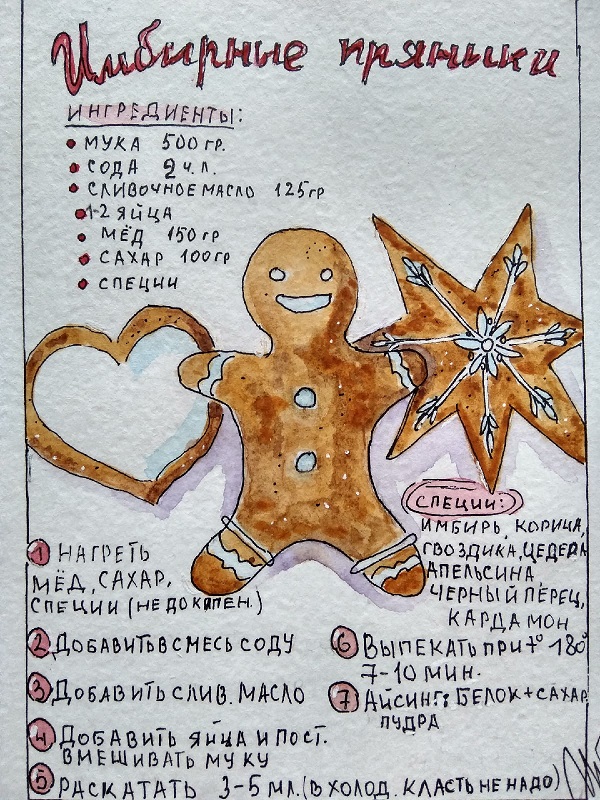 Имбирные пряники
ИНГРЕДИЕНТЫ:
МУКА 500 ГР.
СОДА 2 Ч.Л.
СЛИВОЧНОЕ МАСЛО 125 ГР
1-2 ЯЙЦА
МЁД 150 ГР
САХАР 100 ГР
СПЕЦИИ
СПЕЦИИ:
ИМБИРЬ, КОРИЦА,
ГВОЗДИКА, ЦЕДРА
АПЕЛЬСИНА,
ЧЕРНЫЙ ПЕРЕЦ,
КАРДАМОН
1 НАГРЕТЬ
МЁД, САХАР,
СПЕЦИИ (НЕ ДО КИПЕН.)
2 ДОБАВИТЬ В СМЕСЬ СОДУ
3 ДОБАВИТЬ СЛИВ. МАСЛО
4 ДОБАВИТЬ ЯЙЦА И ПОСТ.
ВМЕШИВАТЬ МУКУ
5 РАСКАТАТЬ 3-5 МЛ. (В ХОЛОД. КЛАСТЬ НЕ НАДО)
6 ВЫПЕКАТЬ ПРИ t° 180°
7-10 МИН.
7 АЙСИНГ: БЕЛОК + САХАР.
ПУДРА